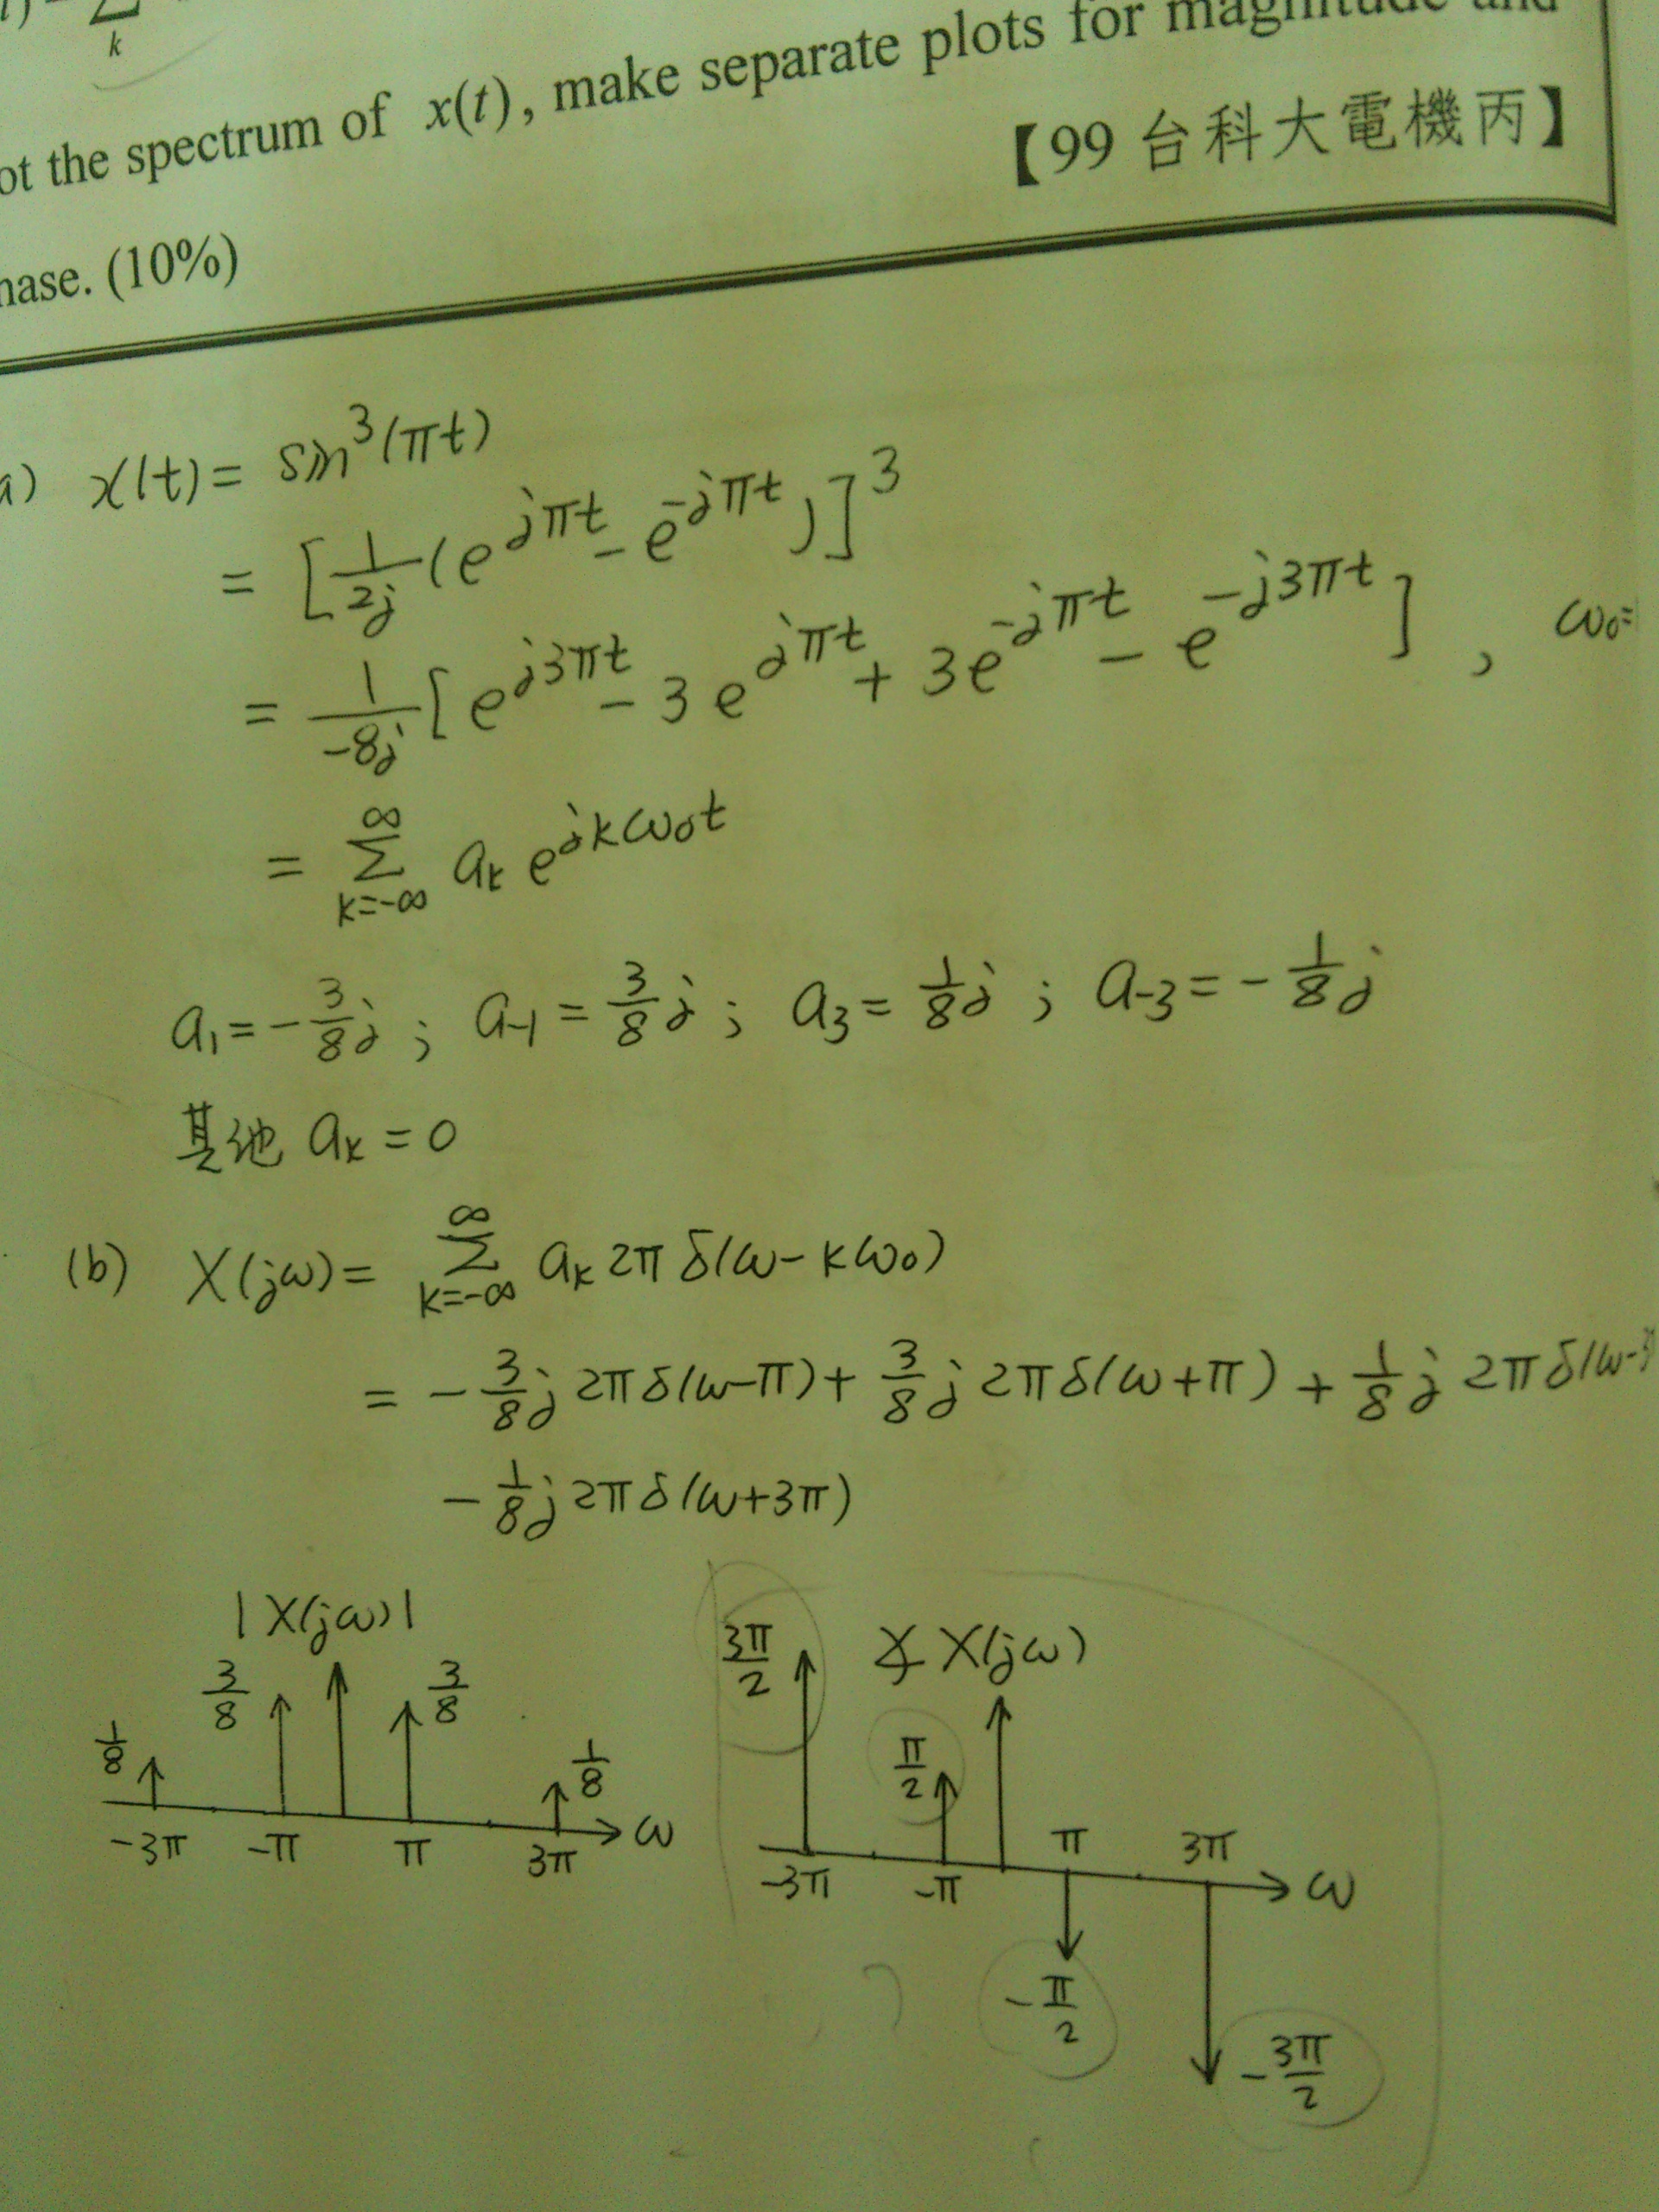 k
ot the spectrum of x(t), make separate plots for magnitude and
【99 台科大電機丙】
hase. (10%)
a) x(t) = sin³(πt)
= [1/2j (e^{jπt} - e^{-jπt})]³
= 1/-8j [e^{j3πt} - 3e^{jπt} + 3e^{-jπt} - e^{-j3πt}] , ω₀=
= ∑_{k=-∞}^{∞} a_k e^{jkω₀t}
a₁ = -3/8 j ; a₋₁ = 3/8 j ; a₃ = 1/8 j ; a₋₃ = -1/8 j
其他 a_k = 0
(b) X(jω) = ∑_{k=-∞}^{∞} a_k 2π δ(ω - kω₀)
= -3/8 j 2πδ(ω-π) + 3/8 j 2πδ(ω+π) + 1/8 j 2πδ(ω-3
-1/8 j 2πδ(ω+3π)
|X(jω)|
1/8 3/8 3/8 1/8
-3π -π π 3π ω
∡ X(jω)
3π/2 π/2
-3π -π π 3π ω
-π/2 -3π/2